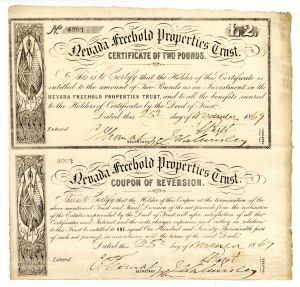 No 4983 £2.
Nevada Freehold Properties Trust.
CERTIFICATE OF TWO POUNDS.
This is to Certify that the Holder of this Certificate is
entitled to the amount of Two Pounds as an Investment in the
NEVADA FREEHOLD PROPERTIES TRUST, and to all the benefits secured
to the Holders of Certificates by the Deed of Trust.
Dated this 25th day of November 1869
Entered
SECRETARY
4983
Nevada Freehold Properties Trust.
COUPON OF REVERSION.
This is to Certify that the Holder of this Coupon at the termination of the
above mentioned Trust and final Division of the nett proceeds from the realization
of the Estates as provided by the Deed of Trust will after satisfaction of all the
Certificates and Interest and the costs, charges, expenses and monies in respect
to this Trust be entitled to ONE equal One Hundred and Twenty Thousandth part
of such nett proceeds in accordance with the terms of the said Deed.
Dated this 25th day of November 1869
Entered
SECRETARY